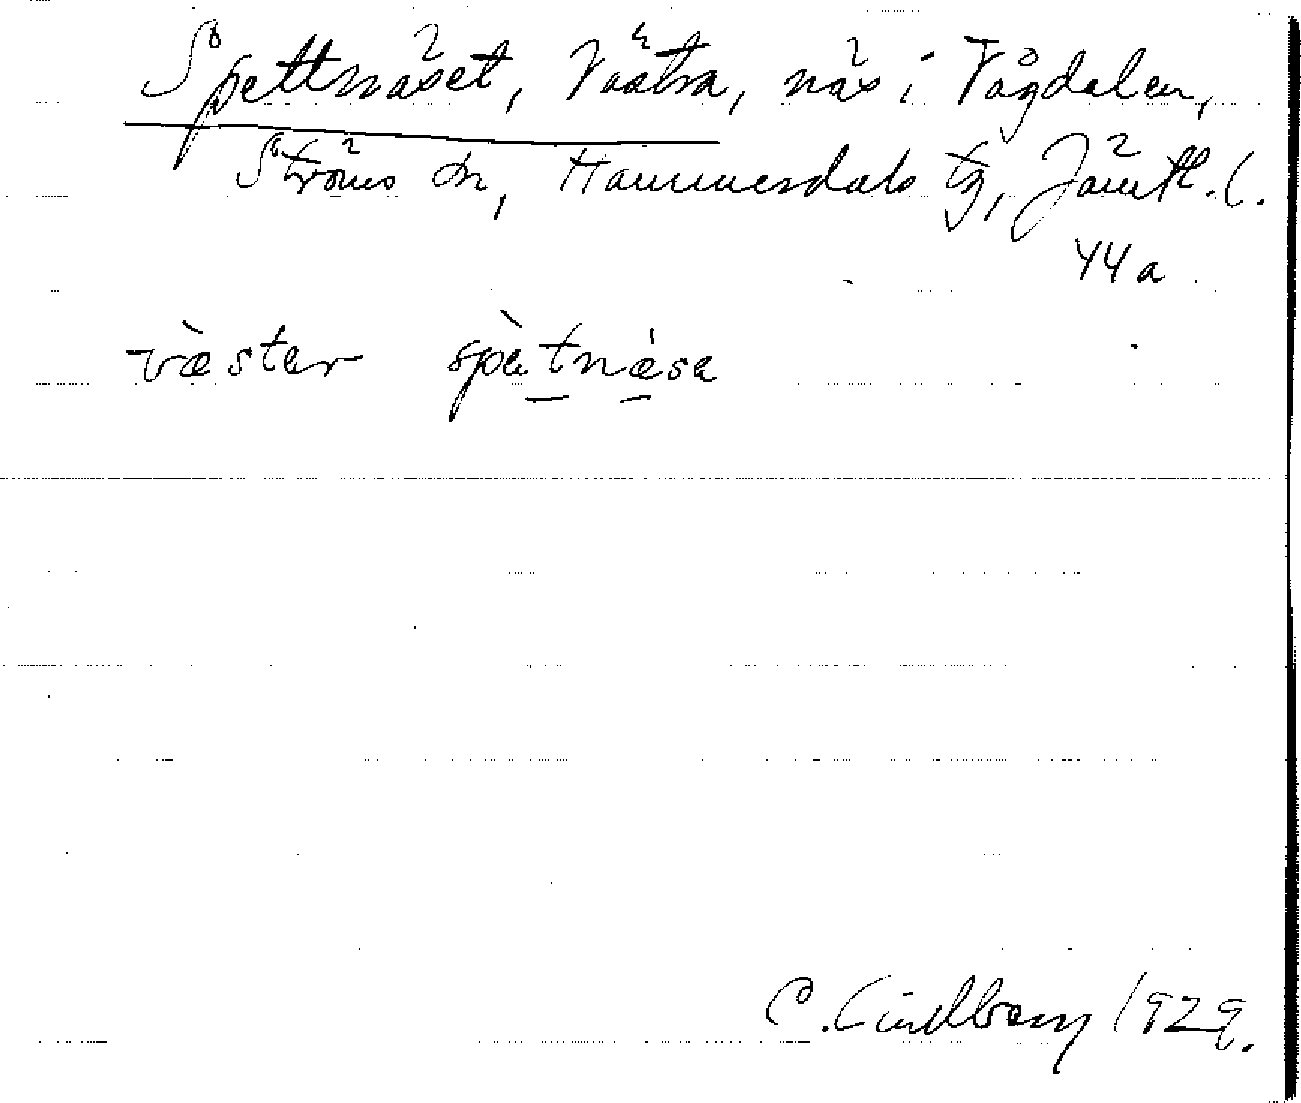 Spettnäset, Västra, näs i Vågdalen,
Ströms sn, Hammerdals tg, Jämtl. l.
44a
vὰster spὰtnǽsa
C. Lindberg 1929.